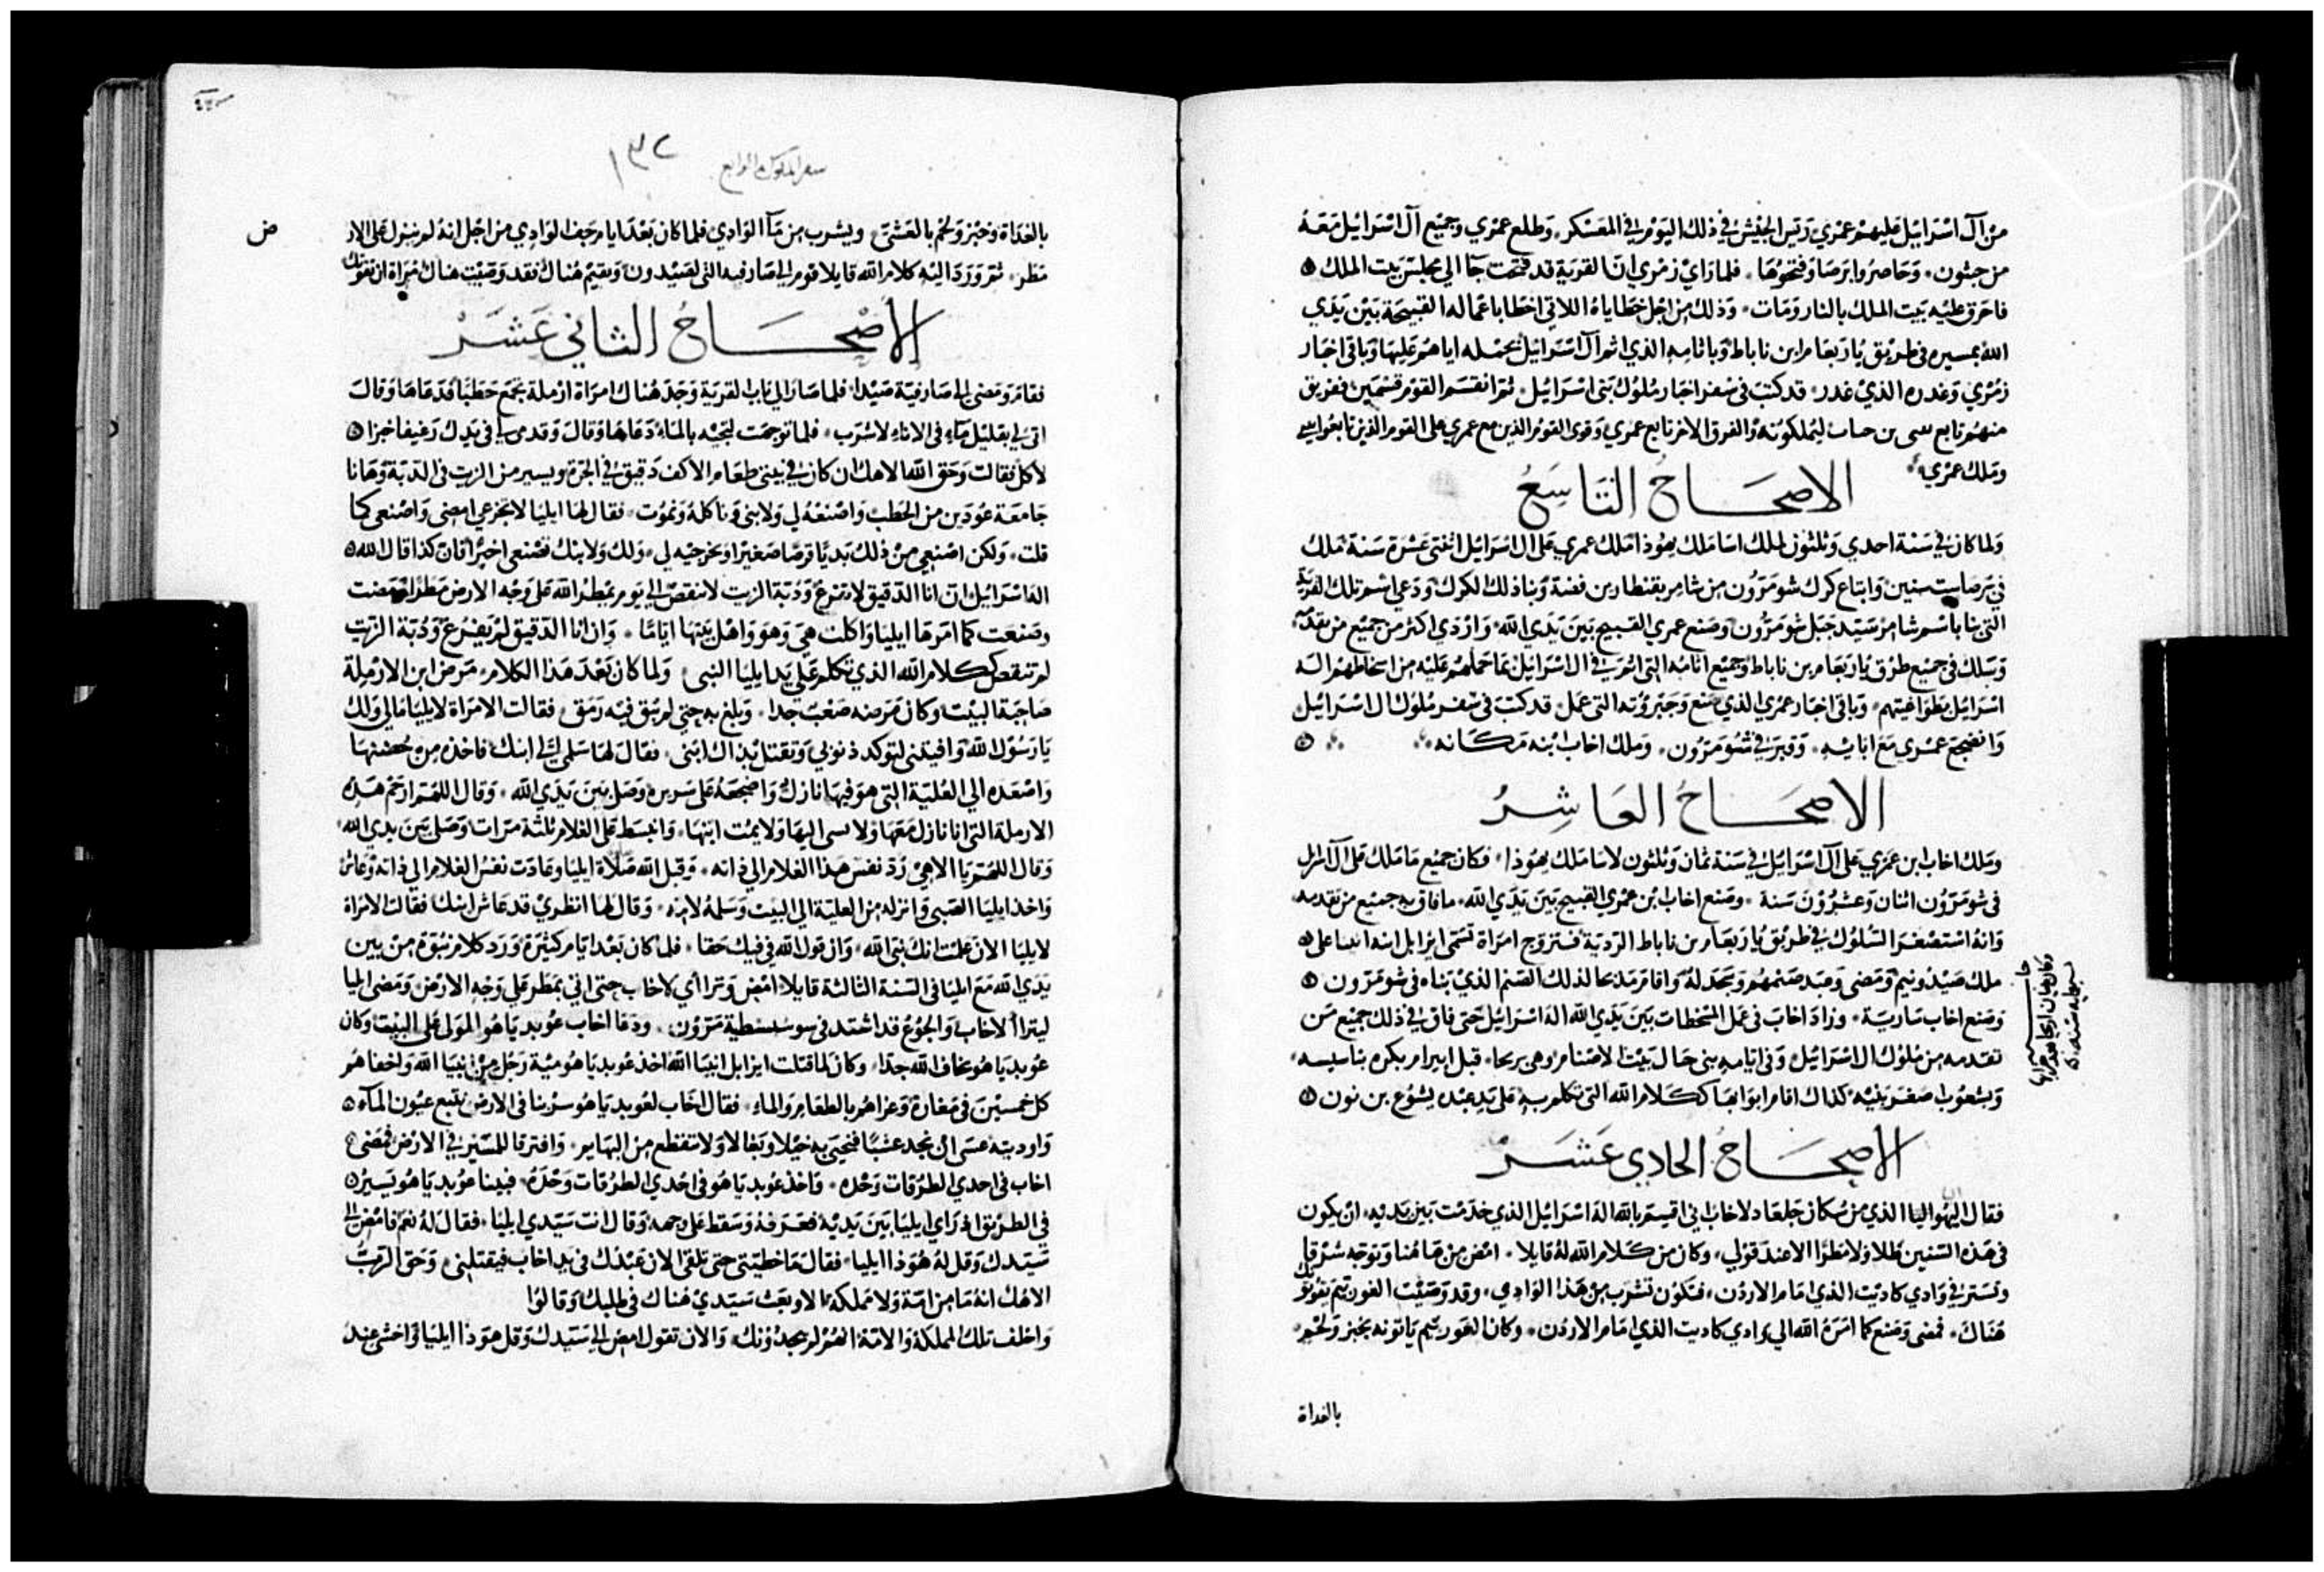 من آل اسرائيل عليهم عمري رئيس الجيش في ذلك اليوم في المعسكر وطلع عمري وجميع آل اسرائيل معه
من جبثون وحاصروا برصا وفتحوها فلما راي زمري ان القرية قد فتحت جآ الي مجلس بيت الملك
فاحرق عليه بيت الملك بالنار ومات وذلك من اجل خطاياه اللاتي اخطا باعماله القبيحة بين يدي
الله بمسيره في طريق ياربعام ابن ناباط وباثامه الذي اثم آل اسرائيل بحمله اياهم عليها وباقي اخبار
زمري وغدره الذي غدر قد كتب في سفر اخبار ملوك بني اسرائيل ثم انقسم القوم قسمين ففريق
منهم تابع بن ليملكونه والفرق الاخر تابع عمري وقوي القوم الذين مع عمري علي القوم الذين تابعوا
وملك عمري
الاصحاح التاسع
ولما كان في سنة احدي وثلثون لملك اسا ملك يهوذا ملك عمري علي ال اسرائيل اثنتي عشرة سنة ملك
في برصا ست سنين وابتاع كرك شومرون من شامر بقنطارين فضة وبنا ذلك الكرك ودعي اسم تلك القرية
التي بنا باسم شامر سيد جبل شومرون وصنع عمري القبيح بين يدي الله وازدي اكثر من جميع من تقدمه
وسلك في جميع طرق ياربعام بن ناباط وجميع اثامه التي اثم في ال اسرائيل بما حملهم عليه من اسخاطهم اله
اسرائيل بطواغيتهم وباقي اخبار عمري الذي صنع وجبروته التي عمل قد كتب في سفر ملوك ال اسرائيل
وانضجع عمري مع ابائه وقبر في شومرون وملك اخاب ابنه مكانه
الاصحاح العاشر
وملك اخاب ابن عمري علي آل اسرائيل في سنة ثمان وثلثون لاسا ملك يهوذا فكان جميع ما ملك علي آل اسرائيل
في شومرون اثنان وعشرون سنة وصنع اخاب بن عمري القبيح بين يدي الله ما فاق به جميع من تقدمه
وانه استصغر السلوك في طريق ياربعام بن ناباط الردية فتزوج امراة تسمي ايزابل ابنة
ملك صيدونيم ومضي وعبد صنمهم وسجد له واقام مذبحا لذلك الصنم الذي بناه في شومرون
وصنع اخاب سارية وزاد اخاب في عمل المسخطات بين يدي الله اله اسرائيل حتي فاق في ذلك جميع من
تقدمه من ملوك ال اسرائيل وفي ايامه بني حال بيت الاصنام وهي يريحا قبل ابيرام بكره
وبشعوب اصغر بنيه كذاك اقام ابوابها ككلام الله التي تكلم به علي يد عبده يشوع بن نون
الاصحاح الحادي عشر
فقال اليهو اليا الذي من سكان جلعاد لاخاب اني اقسم بالله اله اسرائيل الذي خدمت بين يديه ان يكون
في هذه السنين طلا ولا مطرا الا عند قولي وكان من كلام الله له قايلا امض من هاهنا وتوجه شرقا
وتستر في وادي كاديت الذي امام الاردن فتكون تشرب من هذا الوادي وقد وصيت الغوربيم يقوتوك
هناك فمضي وصنع كما امره الله الي وادي كاديت الذي امام الاردن وكان الغوربيم ياتونه بخبز ولحم
بالغداة
سفر الملوك الرابع
١٣٢
بالغداة وخبز ولحم بالعشي ويشرب من مآ الوادي فلما كان بعد ايام جف الوادي من اجل انه لم ينزل علي الارض
مطر ثم ورد اليه كلام الله قايلا قوم الي صارفيه التي لصيدون وتقيم هناك فقد وصيت هناك امراة ان تقوتك
الاصحاح الثاني عشر
فقام ومضي الي صارفية صيدا فلما صار الي باب القرية وجد هناك امراة ارملة تجمع حطبا فدعاها وقال
اتي لي بقليل ماء في الاناء لاشرب فلما توجهت لتجيه بالماء دعاها وقال وقدمي لي في يدك رغيفا خبزا
لاكل فقالت وحق الله الاهك ان كان في بيتي طعام الا كف دقيق في الجرة ويسير من الزيت في الدبة وهانا
جامعة عودين من الحطب واصنعه لي ولابني وناكله ونموت فقال لها ايليا لا تجزعي امضي واصنعي كما
قلت ولكن اصنعي من ذلك بديا قرصا صغيرا وتخرجيه لي ولك ولابنك تصنعي اخيرا فان كذا قال الله
اله اسرائيل ان انا الدقيق لا يفرغ ودبة الزيت لا تنقص الي يوم يمطر الله علي وجه الارض مطرا فمضت
وصنعت كما امرها ايليا واكلت هي وهو واهل بيتها اياما وان انا الدقيق لم يفرغ ودبة الزيت
لم تنقص ككلام الله الذي تكلم علي يد ايليا النبي ولما كان بعد هذا الكلام مرض ابن الارملة
صاحبة البيت وكان مرضه صعب جدا وبلغ به حتي لم يبق فيه رمق فقالت الامراة لايليا مالي ولك
يا رسول الله وافيتني لتوكد ذنوبي وتقتل بذاك ابني فقال لها سلمي الي ابنك فاخذه من حضنها
واصعده الي العلية التي هو فيها نازل واضجعه علي سريره وصل بين يدي الله وقال اللهم ارحم هذه
الارملة التي انا نازل معها ولا اليها ولا يمت ابنها وانبسط علي الغلام ثلثة مرات وصلي بين يدي الله
وقال اللهم يا الاهي رد نفس هذا الغلام الي ذاته وقبل الله صلاة ايليا وعادت نفس الغلام الي ذاته وعاش
واخذ ايليا الصبي وانزله من العلية الي البيت وسلمه لامه وقال لها انظري قد عاش ابنك فقالت الامراة
لايليا الان علمت انك نبي الله وان قول الله في فيك حقا فلما كان بعد ايام كثيرة ورد كلام نبوة من بين
يدي الله مع ايليا في السنة الثالثة قايلا امض وتراأي لاخاب حتي اني بمطر علي وجه الارض ومضي ايليا
ليتراأ لاخاب والجوع قد اشتد في سوسسطية مرون ودعا اخاب عوبدياهو المولي علي البيت وكان
عوبدياهو يخاف الله جدا وكان لما قتلت ايزابل انبيا الله اخذ عوبدياهو مية رجل من انبيا الله واخفاهم
كل خمسين في مغارة وعزاهم بالطعام والماء فقال اخاب لعوبدياهو سر بنا في الارض نتبع عيون المآء
واوديته عسي ان نجد عشبا فنحيي به خيلا وبغالا ولا تنقطع من البهايم وافترقا للمسير في الارض فمضي
اخاب في احدي الطرقات وحده واخذ عوبدياهو في احدي الطرقات وحده فبينا عوبدياهو يسير
في الطريق اذ راي ايليا بين يديه فعرفه وسقط علي وجهه وقال انت سيدي ايليا فقال له نعم فامض الي
سيدك وقل له هوذا ايليا فقال ما خطيتي حتي تلقي الان عبدك في يد اخاب فيقتلني وحق الرب
الاهك انه ما من امة ولا مملكة الا وبعث سيدي هناك في طلبك وقالوا
واحلف تلك المملكة والامة انهم لم يجدونك والان تقول امض الي سيدك وقل هوذا ايليا واخشي عند